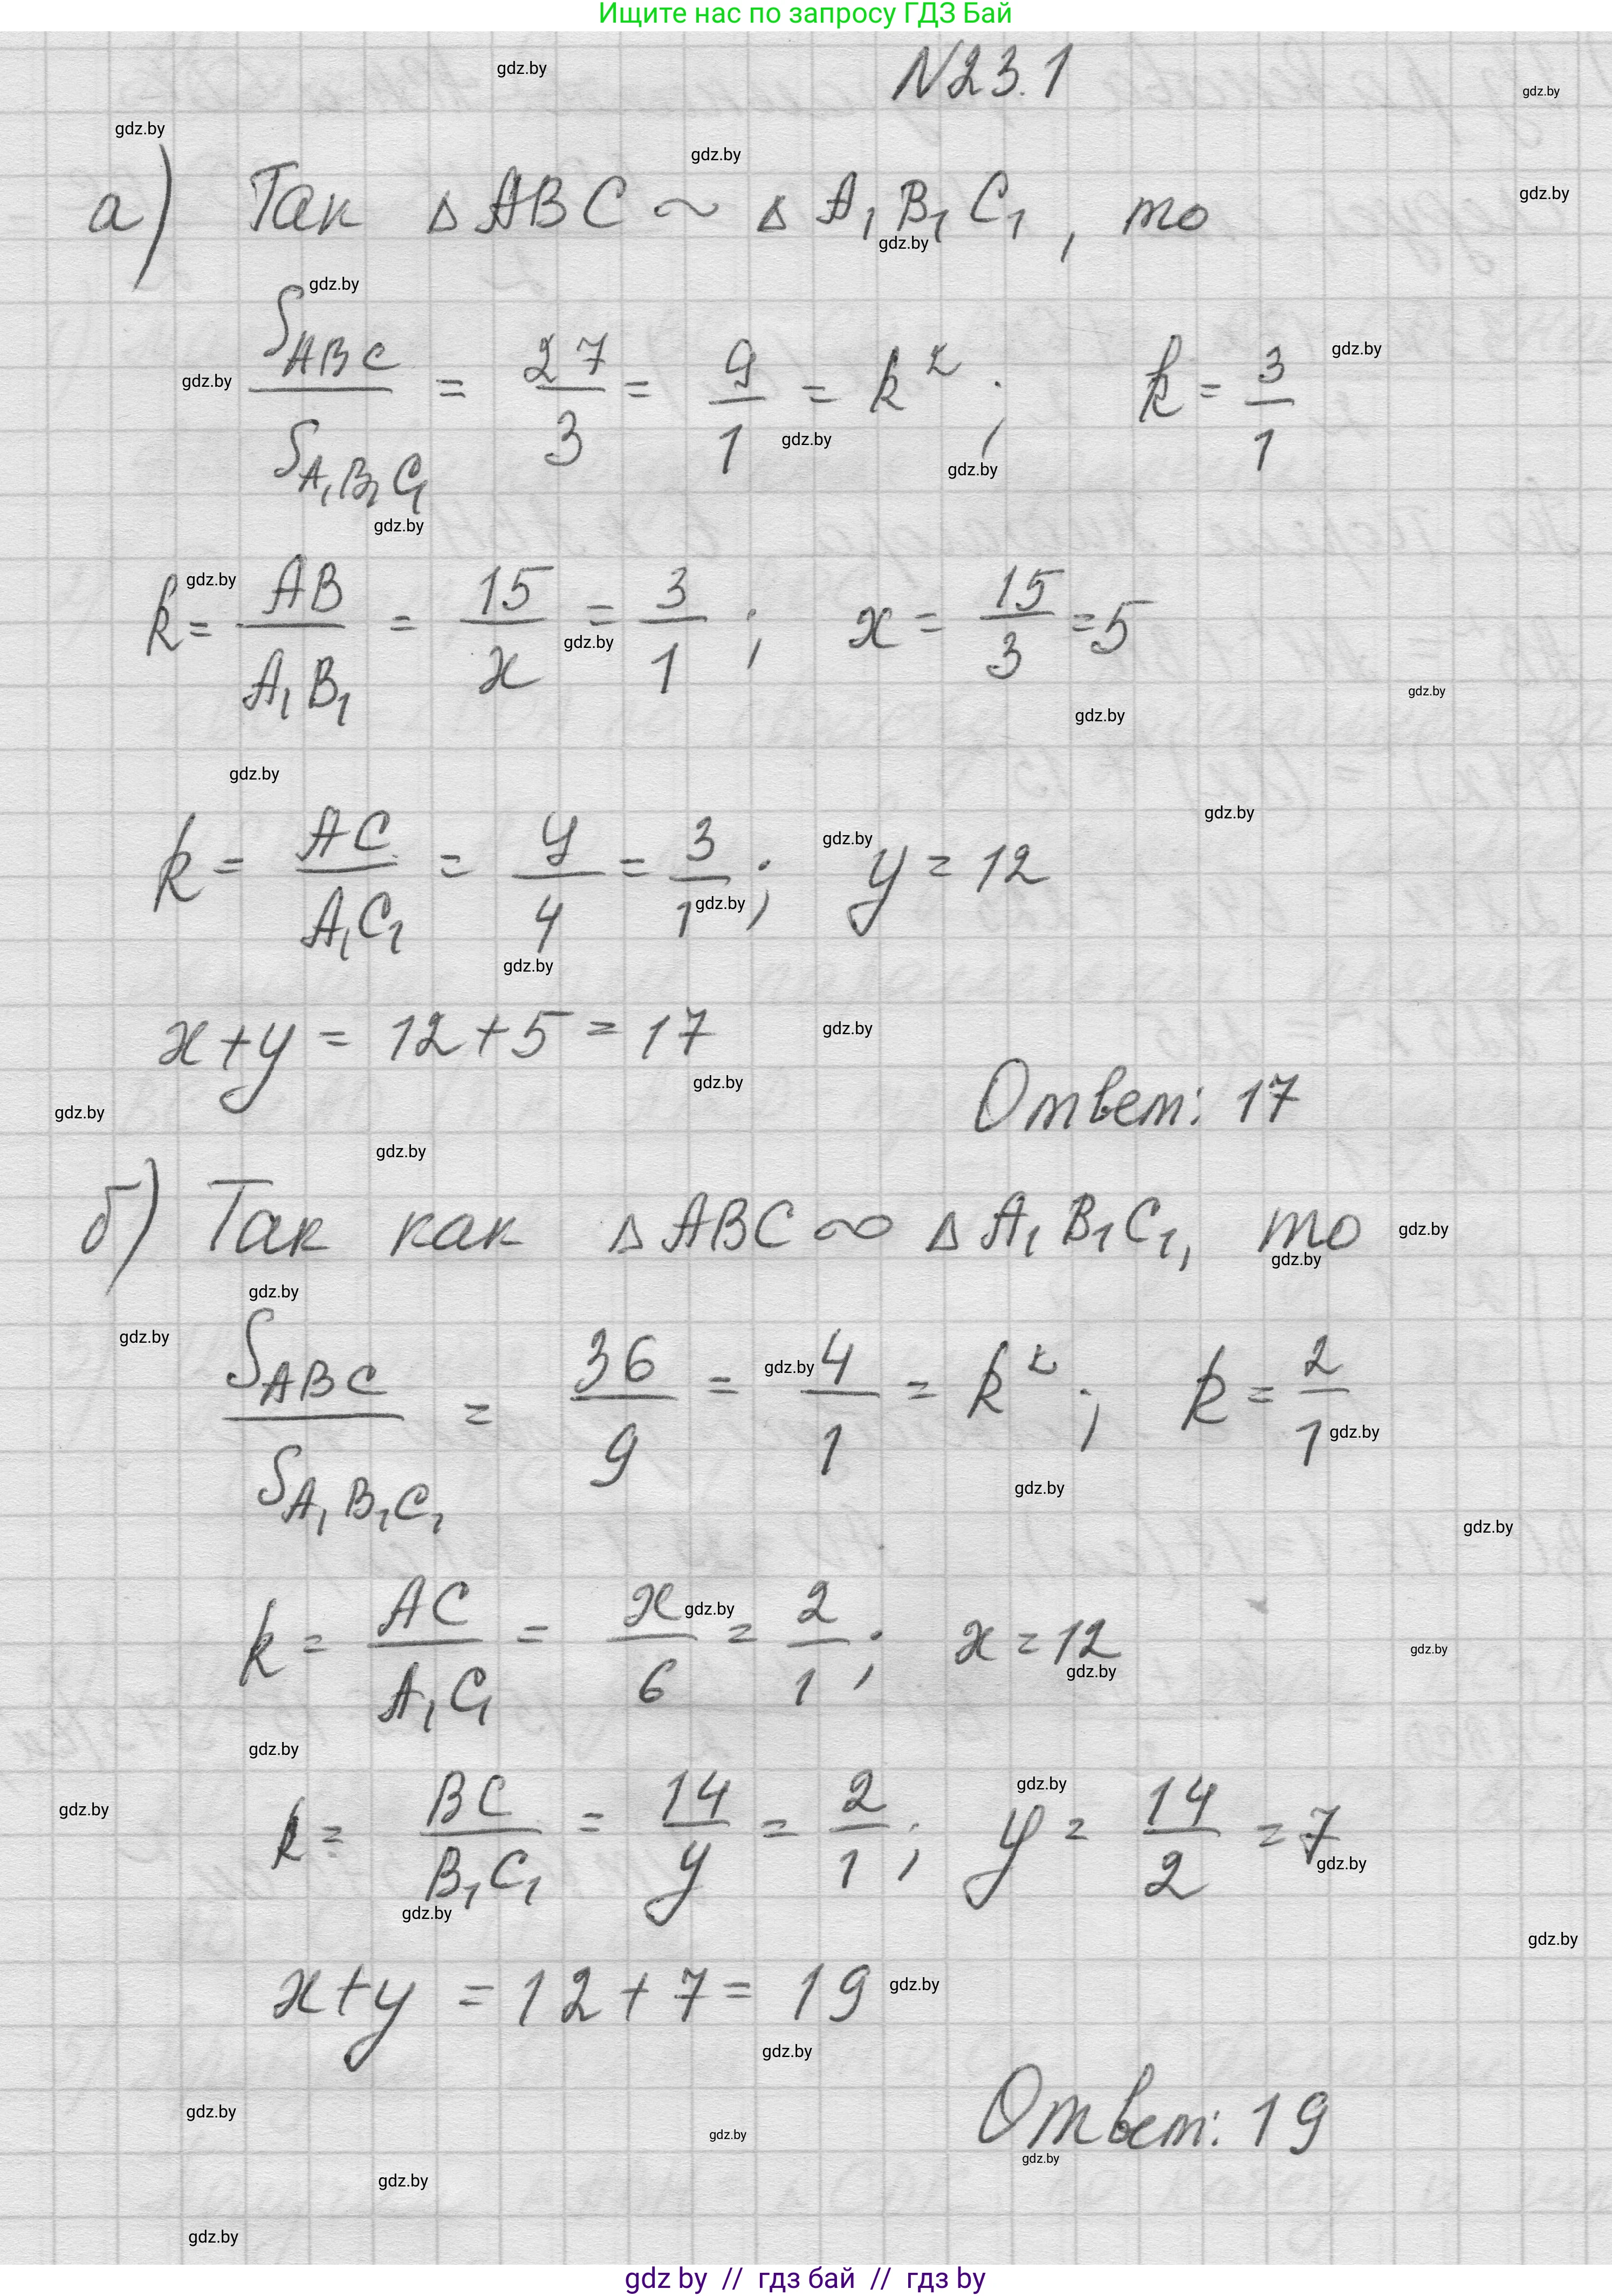 Ищите нас по запросу ГДЗ Бай
N23.1
а) Так ΔABC ~ ΔA₁B₁C₁, то
S_ABC / S_A₁B₁C₁ = 27/3 = 9/1 = k²; k = 3/1
k = AB/A₁B₁ = 15/x = 3/1; x = 15/3 = 5
k = AC/A₁C₁ = y/4 = 3/1; y = 12
x+y = 12+5 = 17
Ответ: 17
б) Так как ΔABC ∞ ΔA₁B₁C₁, то
S_ABC / S_A₁B₁C₁ = 36/9 = 4/1 = k²; k = 2/1
k = AC/A₁C₁ = x/6 = 2/1; x = 12
k = BC/B₁C₁ = 14/y = 2/1; y = 14/2 = 7
x+y = 12+7 = 19
Ответ: 19
gdz by // гдз бай // гдз by